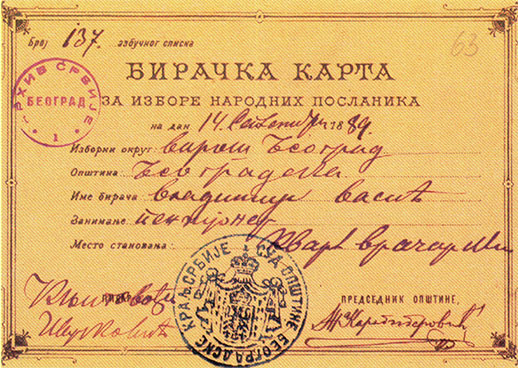 Број 137. азбучног списка
63
БИРАЧКА КАРТА
ЗА ИЗБОРЕ НАРОДНИХ ПОСЛАНИКА
на дан 14. Септембра 1889.
АРХИВ СРБИЈЕ
БЕОГРАД
1
Изборни округ: варош Београд
Општина: Београдска
Име бирача: Владимир Васић
Занимање: пензионер
Место становања: Кварт врачарски
ПРЕДСЕДНИК ОПШТИНЕ,
КРАЉ. СРБИЈЕ СУД ОПШТИНЕ БЕОГРАДСКЕ